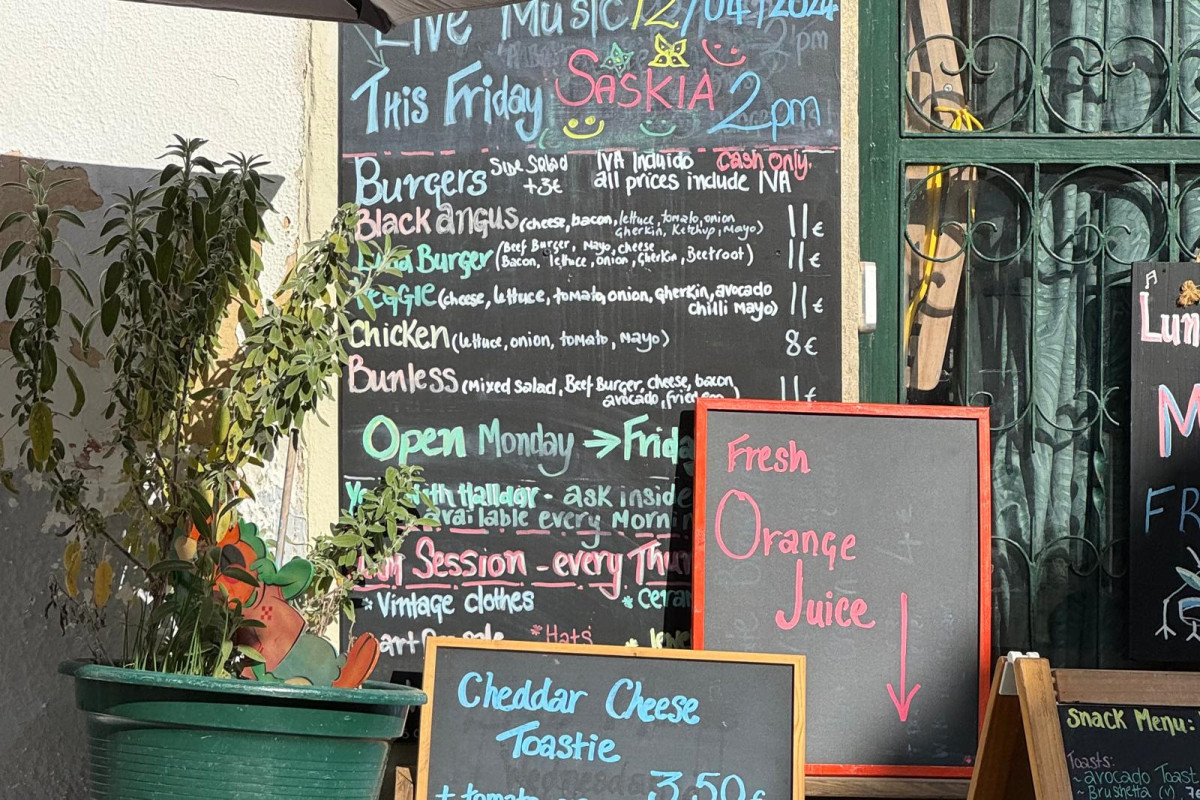 Live Music 12/04/2024
This Friday SASKIA 2pm
Burgers Side Salad +3€ IVA Incluido cash only.
all prices include IVA
Black angus (cheese, bacon, lettuce, tomato, onion
Gherkin, Ketchup, Mayo) 11€
Burger (Beef Burger, Mayo, cheese
Bacon, lettuce, onion, Gherkin, Beetroot) 11€
Veggie (cheese, lettuce, tomato, onion, gherkin, avocado
chilli Mayo) 11€
Chicken (lettuce, onion, tomato, Mayo) 8€
Bunless (Mixed Salad, Beef Burger, cheese, bacon
avocado, fried 11€
Open Monday → Frid
with Halldor - ask inside
available every Morni
Session - every Thu
* Vintage clothes * cera
art for sale * Hats
Fresh
Orange
Juice
Cheddar Cheese
Toastie
+ tomato 3,50€
Lun
M
FR
Snack Menu:
Toasts:
~ avocado Toast
~ Brushetta (v)